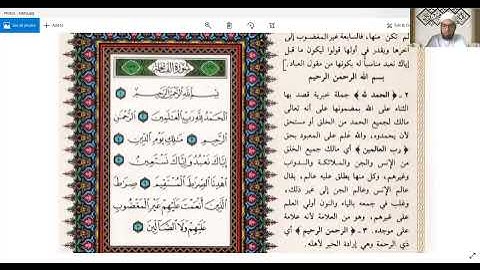 See all photos
+ Add to
لم تكن منها، فالسابعة غير المغضوب إلى
آخرها ويقدر في أولها قولوا ليكون ما قبل
إياك نعبد مناسباً له بكونها من مقول العباد.]
بسم الله الرحمن الرحيم
٢ ـ ﴿الحمد لله﴾ جملة خبرية قصد بها
الثناء على الله بمضمونها على أنه تعالى
مالك لجميع الحمد من الخلق أو مستحق
لأن يحمدوه، والله علم على المعبود بحق
﴿رب العالمين﴾ أي مالك جميع الخلق
من الإنس والجن والملائكة والدواب
وغيرهم، وكل منها يطلق عليه عالم، يقال
عالم الإنس وعالم الجن إلى غير ذلك،
وغلب في جمعه بالياء والنون أولي العلم
على غيرهم، وهو من العلامة لأنه علامة
على موجده. ٣ ـ ﴿الرحمن الرحيم﴾ أي
ذي الرحمة وهي إرادة الخير لأهله.
سُورَةُ الفَاتِحَةِ
بِسْمِ اللَّهِ الرَّحْمَٰنِ الرَّحِيمِ ١
الْحَمْدُ لِلَّهِ رَبِّ الْعَالَمِينَ ٢ الرَّحْمَٰنِ
الرَّحِيمِ ٣ مَالِكِ يَوْمِ الدِّينِ ٤
إِيَّاكَ نَعْبُدُ وَإِيَّاكَ نَسْتَعِينُ ٥
اهْدِنَا الصِّرَاطَ الْمُسْتَقِيمَ ٦ صِرَاطَ
الَّذِينَ أَنْعَمْتَ عَلَيْهِمْ غَيْرِ الْمَغْضُوبِ
عَلَيْهِمْ وَلَا الضَّالِّينَ ٧